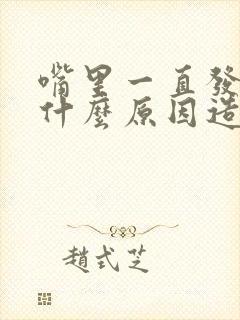 嘴里一直發
什麼原因造
趙式芝